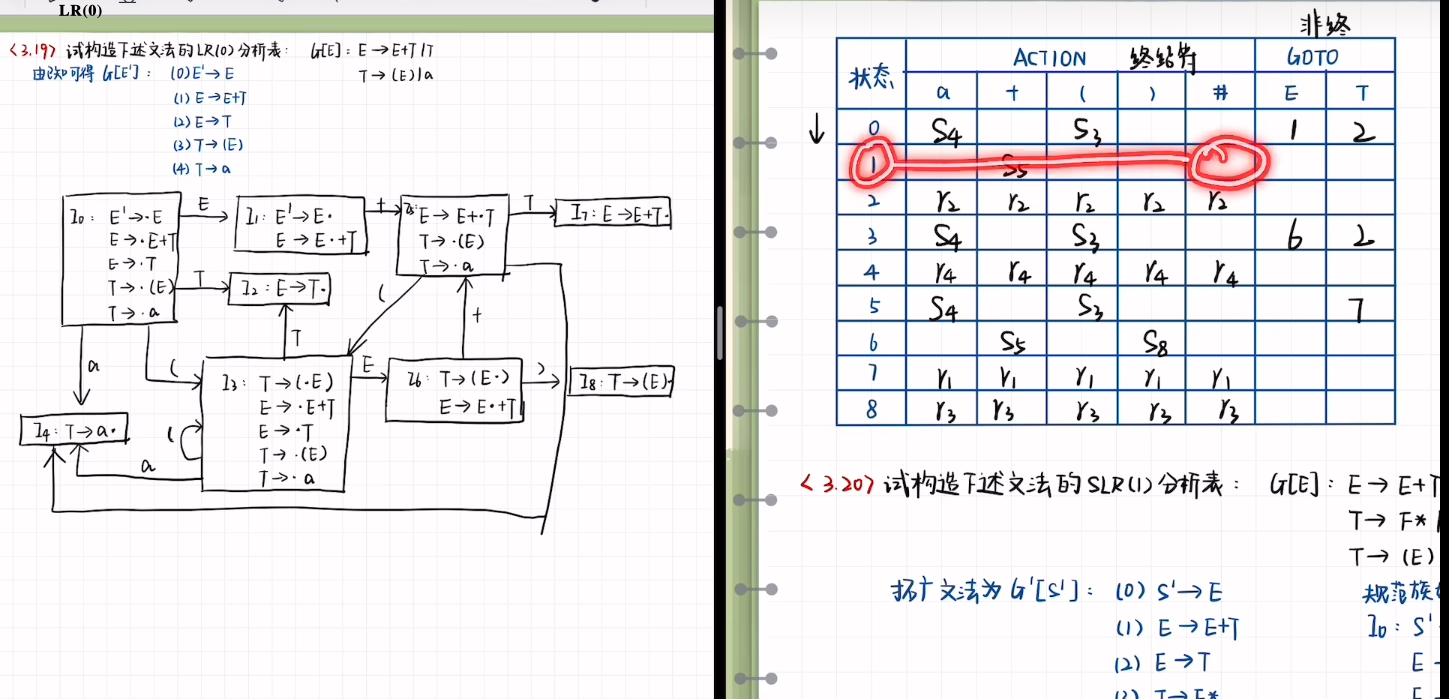 LR(0)
<3.19> 试构造下述文法的LR(0)分析表: G[E]: E→E+T|T
T→(E)|a
由已知可得 G[E']: (0)E'→E
(1) E→E+T
(2) E→T
(3) T→(E)
(4) T→a
I0: E'→·E
E→·E+T
E→·T
T→·(E)
T→·a
E
I1: E'→E·
E→E·+T
+
I5: E→E+·T
T→·(E)
T→·a
T
I7: E→E+T·
T
I2: E→T·
(
+
T
a
(
I3: T→(·E)
E→·E+T
E→·T
T→·(E)
T→·a
E
I6: T→(E·)
E→E·+T
)
I8: T→(E)·
I4: T→a·
(
a
非终
状态 ACTION 终结符 GOTO
a + ( ) # E T
0 S4 S3 1 2
1 S5
2 r2 r2 r2 r2 r2
3 S4 S3 6 2
4 r4 r4 r4 r4 r4
5 S4 S3 7
6 S5 S8
7 r1 r1 r1 r1 r1
8 r3 r3 r3 r3 r3
<3.20> 试构造下述文法的SLR(1)分析表: G[E]: E→E+T
T→F*
T→(E)
拓广文法为G'[S']: (0) S'→E 规范族
(1) E→E+T I0: S'
(2) E→T E
(3) T→F*